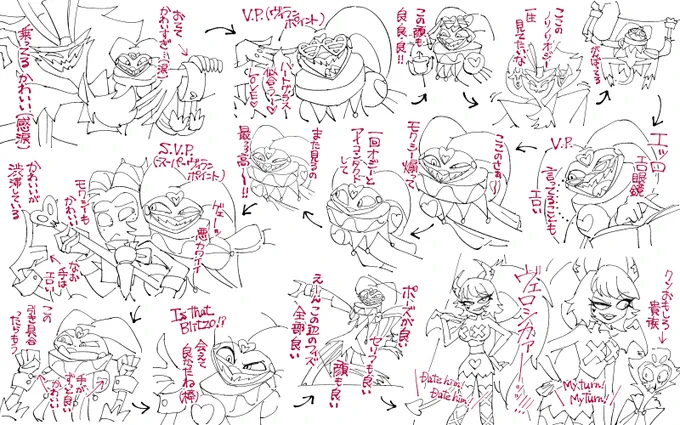 おえて
かわいすぎ…(涙)
乗ってるかわいい(感涙)
V.P.(ヴィランポイント)
ハートグラス
似合う〜♡
LOVE♡
この顔も
良良良!!
ここの
ノリノリオジー
一生
見てたいな
がんばってる
エッロ!
エロ眼鏡
V.P.
言ってることも
エロい
ここのさぁ〜
モクシー帰って
一回オジーと
アイコンタクト
して
また見るの
最っ高〜!!
S.V.P.
(スーパーヴィランポイント)
ヴェーッ
悪カワイイ
モクシーも
かわいい
かわいいが
渋滞している
なお
手は
エロい
この
引き具合
たまらん
手が
ずっと良い
かわいい
Is that
Blitzo!?
会えて
良かったね(棒)
ポーズが良い
セリフも良い
顔も良い
この辺のフィズ
全部良い
ヴェロシカァーーッ!!
Date him!
Date him!
クソおもしろ
貴族
My turn!
My turn!